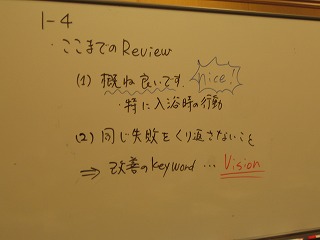 1-4
・ここまでのReview
(1) 概ね良いです. nice!!
・特に入浴時の行動
(2) 同じ失敗をくり返さないこと
⇒ 改善のkeyword … Vision